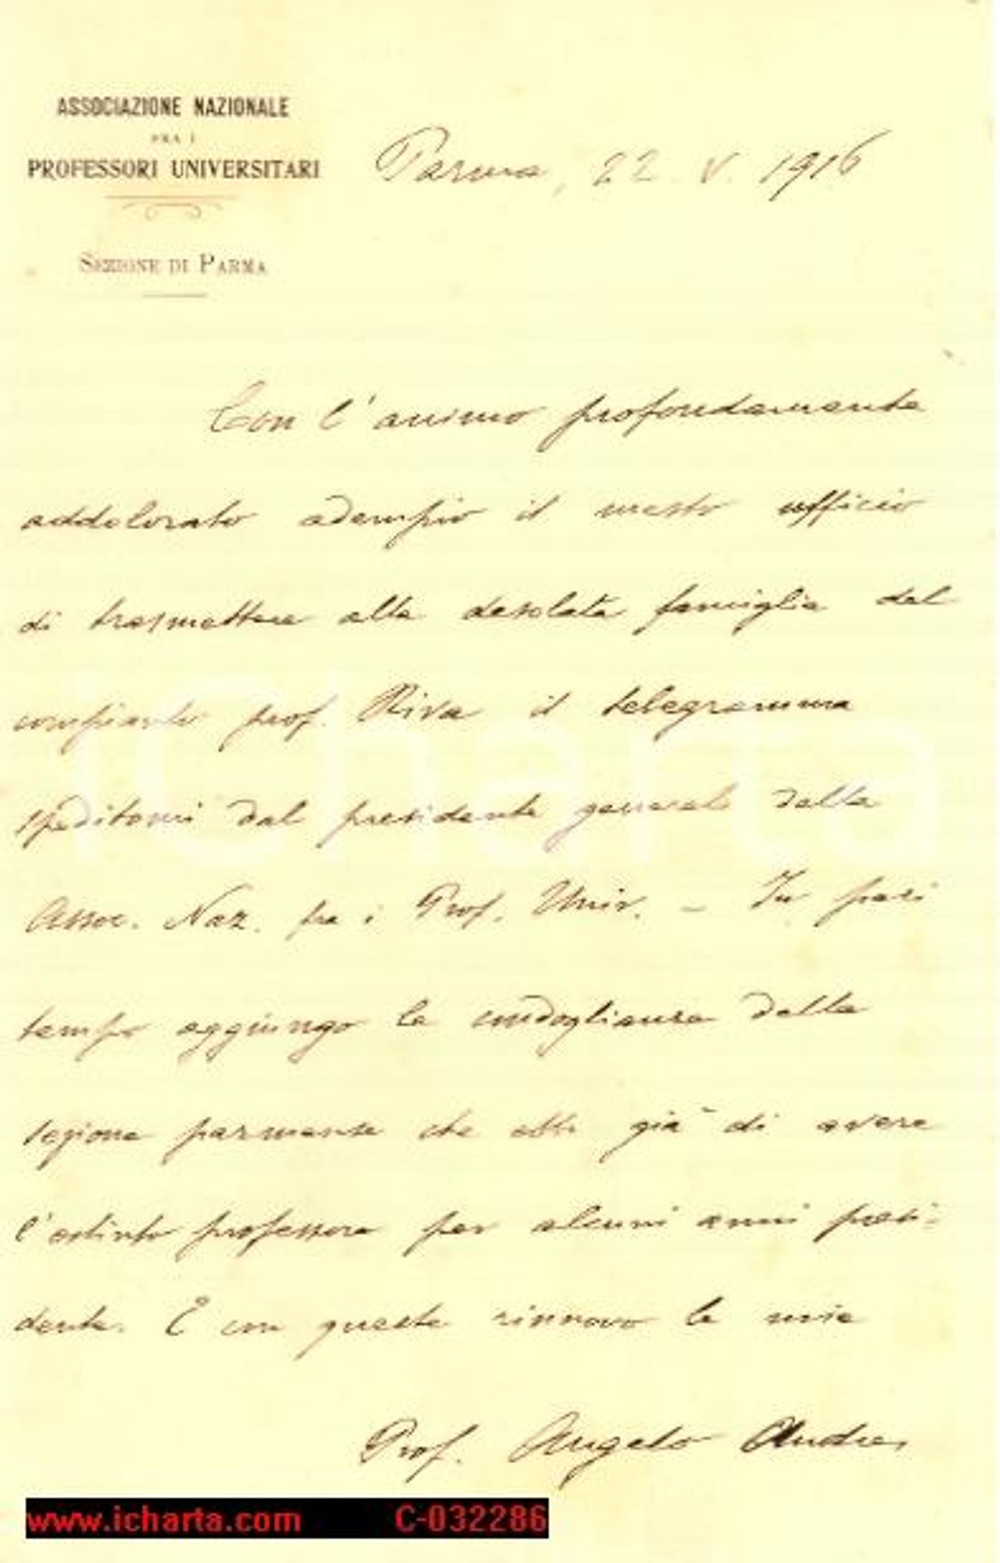 ASSOCIAZIONE NAZIONALE
FRA I
PROFESSORI UNIVERSITARI
SEZIONE DI PARMA
Parma, 22. V. 1916
Con l'animo profondamente
addolorato adempio il mesto ufficio
di trasmettere alla desolata famiglia del
compianto prof. Riva il telegramma
speditomi dal presidente generale della
Assoc. Naz. fra i Prof. Univ. – In pari
tempo aggiungo le condoglianze della
sezione parmense che ebbe già di avere
l'estinto professore per alcuni anni presi-
dente. E con queste rinnovo le mie
Prof. Angelo Andres
iCharta
www.icharta.com C-032286